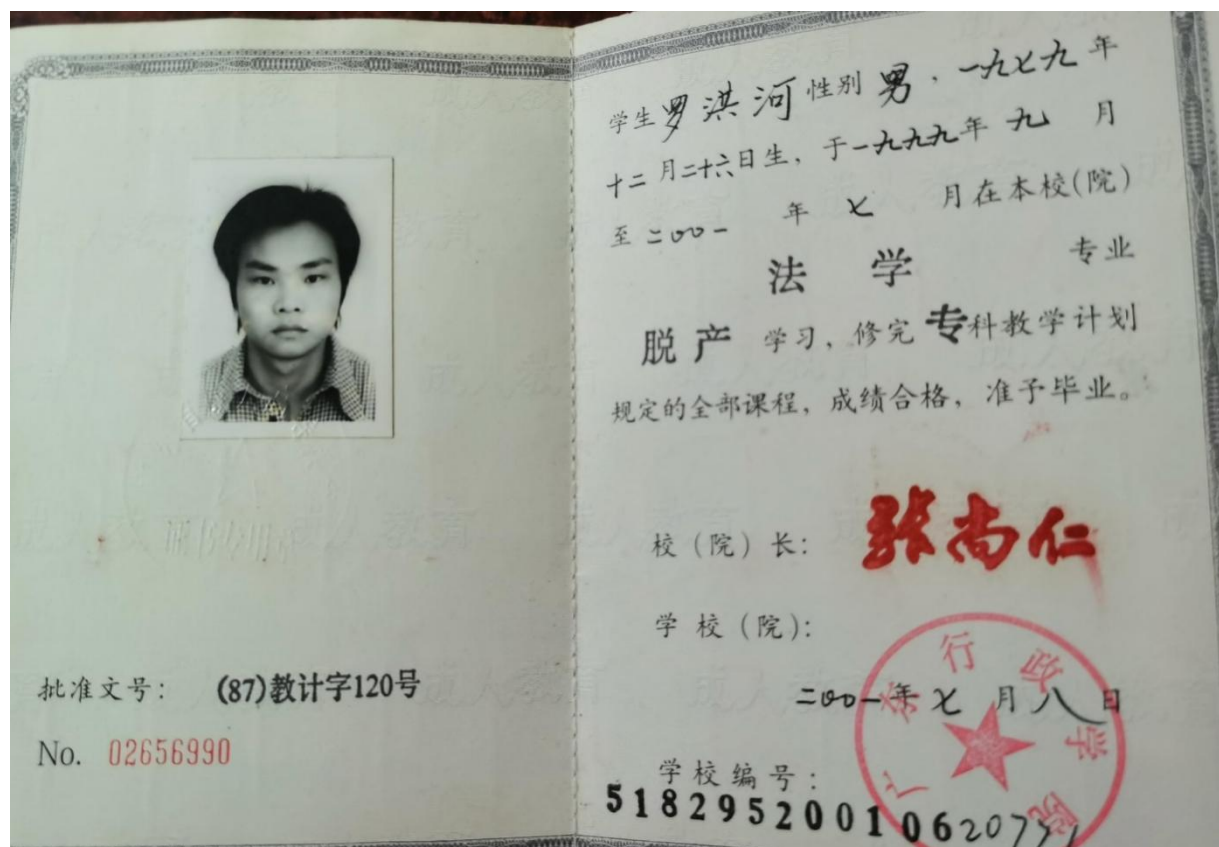 批准文号: (87)教计字120号
No. 02656990
学生罗洪河性别男,一九七九年
十二月二十六日生,于一九九九年九月
至二〇〇一年七月在本校(院)
法学专业
脱产学习,修完专科教学计划
规定的全部课程,成绩合格,准予毕业。
校(院)长: 张尚仁
学校(院):
广东行政学院
二〇〇一年七月八日
学校编号:
518295200106207
成人教育